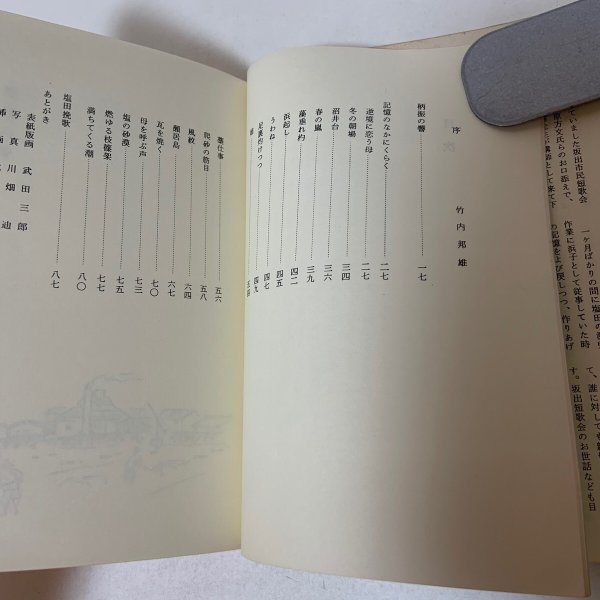 序 竹内邦雄
柄振の響……一七
記憶のなかにくらく……二七
逆境に恋う母……二七
冬の朝場……三四
沼井台……三六
春の嵐……三九
藻垂れ杓……四二
浜起し……四五
うわね……四七
足裏灼けつつ……四九
藻仕事……五六
爬砂の筋目……五八
風紋……六四
瓦を焼く……六七
母を呼ぶ声……七三
塩の砂漠……七五
燃ゆる枝篠架……七七
満ちてくる潮……八〇
塩田挽歌……八七
あとがき
表紙版画 武田三郎
写真 川畑迪
ていました坂出市民短歌会
原万文氏らのお口添えで、
一ヶ月ばかりの間に塩田の
作業に浜子として従事していた時
の記憶をよび戻しつつ、作りあげ
て、誰に対しても
す。坂出短歌会のお世話なども目